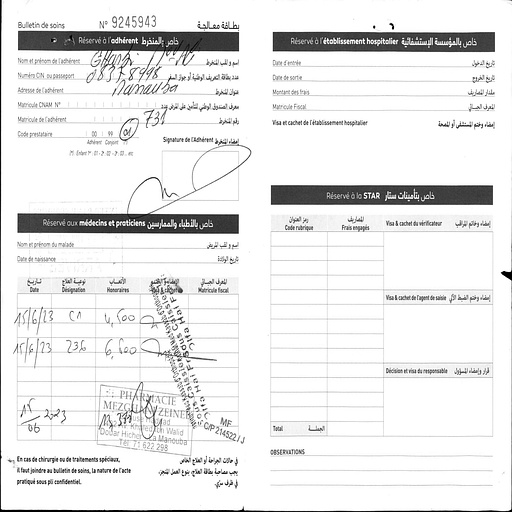 Bulletin de soins N° 9245943 بطاقة معالجة
Réservé à l'adhérent خاص بالمنخرط
Nom et prénom de l'adhérent اسم و لقب المنخرط
Numéro CIN ou passeport 08378998 عدد بطاقة التعريف الوطنية أو جواز السفر
Adresse de l'adhérent Manouba عنوان المنخرط
Matricule CNAM N° معرف الصندوق الوطني للتأمين على المرض عدد
Matricule de l'adhérent 731 رقم المنخرط
Code prestataire 00 99 01
Adhérent Conjoint (*)
(*) Enfant N° : 01 - 02 - 03 ... etc
Signature de l'Adhérent إمضاء المنخرط
Réservé aux médecins et praticiens خاص بالأطباء والممارسين
Nom et prénom du malade اسم و لقب المريض
Date de naissance تاريخ الولادة
تاريخ نوعية العلاج الأتعاب المعرف الجبائي
Date Désignation Honoraires Matricule fiscal
15/6/23 C1 4,500
15/6/23 6,500
15/06 2023
PHARMACIE
MEZGHANI ZEINEB
Khaled Ibn Walid
Douar Hicher La Manouba
Tél: 71 622 298
MF
C/P 214522 / J
En cas de chirurgie ou de traitements spéciaux,
il faut joindre au bulletin de soins, la nature de l'acte
pratiqué sous pli confidentiel.
في حالات الجراحة أو العلاج الخاص
يجب مصاحبة بطاقة العلاج، بنوع العمل المنجز،
في ظرف سري.
Réservé à l'établissement hospitalier خاص بالمؤسسة الإستشفائية
Date d'entrée تاريخ الدخول
Date de sortie تاريخ الخروج
Montant des frais مقدار المصاريف
Matricule Fiscal المعرف الجبائي
Visa et cachet de l'établissement hospitalier إمضاء وختم المستشفى أو المصحة
Réservé à la STAR خاص بتأمينات ستار
رمز العنوان المصاريف
Code rubrique Frais engagés
Visa & cachet du vérificateur إمضاء وختم المراقب
Visa & cachet de l'agent de saisie إمضاء وختم الضبط الآلي
Décision et visa du responsable قرار وإمضاء المسؤول
Total الجملة
OBSERVATIONS